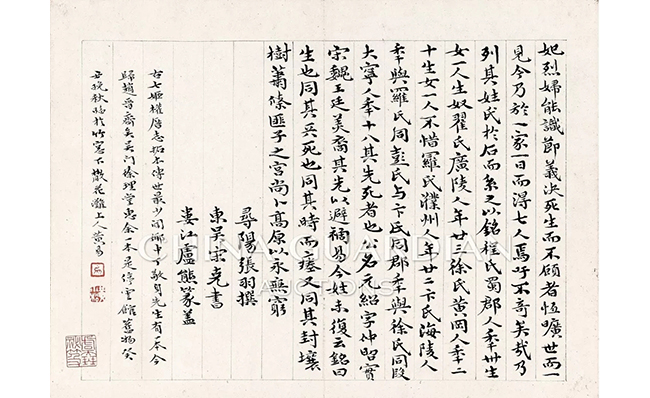 妃烈婦能識節義決死生而不顧者恆曠世而一
見今乃於一家一日而得七人焉吁不奇矣哉乃
列其姓氏於后而系之以銘程氏蜀郡人年卅生
女一人生奴翟氏廣陵人年廿三徐氏黃岡人年二
十生女一人不惜羅氏濮州人年廿二卞氏海陵人
年與羅氏同彭氏与卞氏同郡年與徐氏同段
大寧人年十八其先死者也公名元紹字仲昭實
宋魏王廷美裔其先以避禍易今姓未復云銘曰
生也同其死也同其時而瘞又同其封壤
樹蕭條匪子之宮尚卜高原以永無窮
尋陽張羽撰
東吳宋克書
婁江盧熊篆蓋
古七姬權厝志拓本傳世最少聞鄉中丁敬身先生有一本今
歸趙晉齋矣吴門徐理堂惠余一本是停雲館舊物癸
丑晚秋臨於竹窻下散花灘上人黃易
CHINA GUARDIAN
AUCTIONS